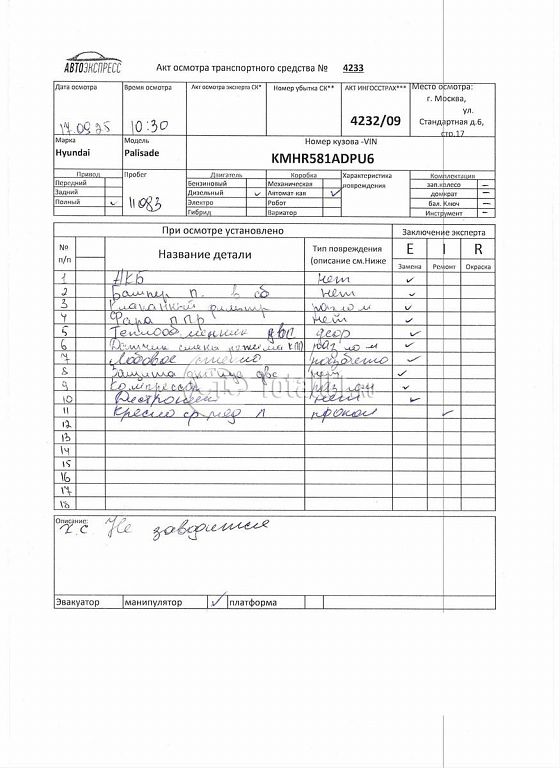 АВТОЭКСПРЕСС
Акт осмотра транспортного средства № 4233
Дата осмотра Время осмотра Акт осмотра эксперта СК* Номер убытка СК** АКТ ИНГОССТРАХ*** Место осмотра:
17.09.25 10:30 4232/09 г. Москва,
ул.
Стандартная д.6,
стр.17
Марка Модель Номер кузова -VIN
Hyundai Palisade KMHR581ADPU6
Привод Пробег Двигатель Коробка Характеристика повреждения Комплектация
Передний Бензиновый Механическая зап.колесо –
Задний Дизельный ✓ Автомат-кая ✓ домкрат –
Полный ✓ 11083 Электро Робот бал. Ключ –
Гибрид Вариатор Инструмент –
При осмотре установлено Заключение эксперта
№ п/п Название детали Тип повреждения (описание см.Ниже E I R
Замена Ремонт Окраска
1 АКБ нет ✓
2 Бампер п. в сб нет ✓
3 фильтр разлом ✓
4 Фара ППР нет ✓
5 Теплообменник ДВС ✓
6 Датчик смены режима КПП разлом ✓
7 Лобовое стекло разбито ✓
8 Защита ДВС ✓
9 Компрессор разлом ✓
10 нет ✓
11 Кресло л прокол ✓
12
13
14
15
16
17
18
Описание:
Х.С. Не заводится
Эвакуатор манипулятор ✓ платформа